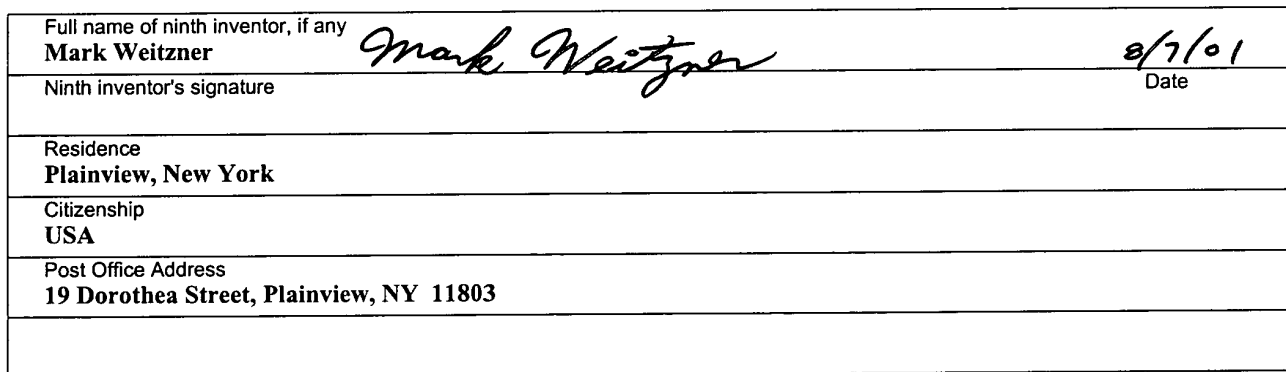 Full name of ninth inventor, if any
Mark Weitzner Mark Weitzner 8/7/01
Ninth inventor's signature Date
Residence
Plainview, New York
Citizenship
USA
Post Office Address
19 Dorothea Street, Plainview, NY 11803